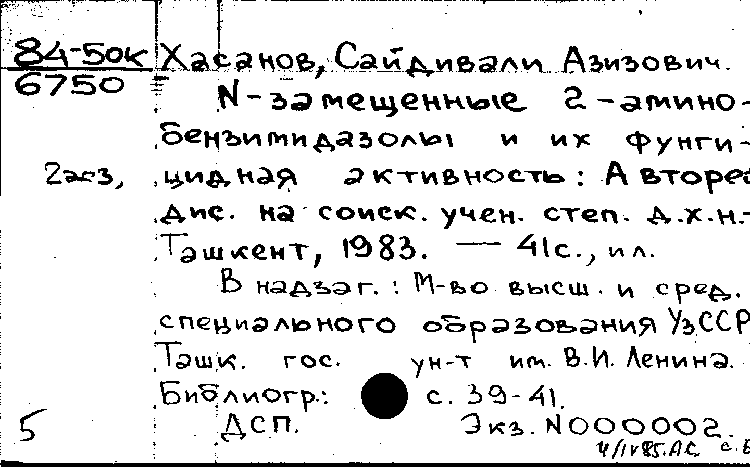 84-50к Хасанов, Сайдивали Азизович.
6750
N-замещенные 2-амино-
бензимидазолы и их фунги-
2экз, цидная активность: Авторе
дис. на соиск. учен. степ. д.х.н.-
Ташкент, 1983. — 41с., ил.
В надзаг.: М-во высш. и сред.
специального образования УзССР
Ташк. гос. ун-т им. В.И. Ленина.
Библиогр.: с. 39-41.
5 ДСП. Экз. N000002.
4/IV85.АС с.